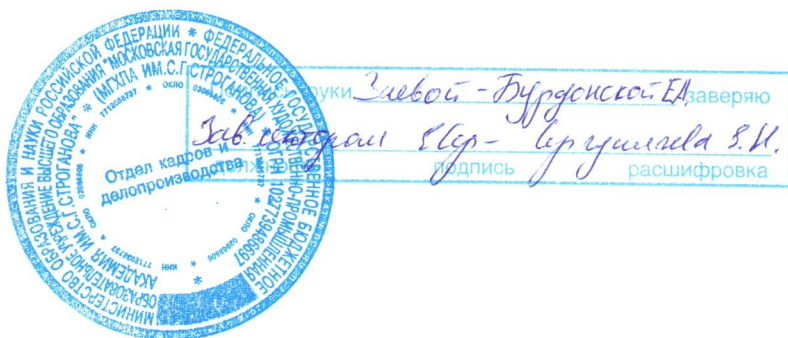 МИНИСТЕРСТВО ОБРАЗОВАНИЯ И НАУКИ РОССИЙСКОЙ ФЕДЕРАЦИИ * ФЕДЕРАЛЬНОЕ ГОСУДАРСТВЕННОЕ БЮДЖЕТНОЕ
ОБРАЗОВАТЕЛЬНОЕ УЧРЕЖДЕНИЕ ВЫСШЕГО ОБРАЗОВАНИЯ "МОСКОВСКАЯ ГОСУДАРСТВЕННАЯ ХУДОЖЕСТВЕННО-ПРОМЫШЛЕННАЯ
АКАДЕМИЯ ИМ.С.Г.СТРОГАНОВА" * (МГХПА ИМ.С.Г.СТРОГАНОВА) * ОГРН 1027739486697 *
Отдел кадров и
делопроизводства
руки Заевой-Бурдонской Е.А. заверяю
Зав. сектором
подпись расшифровка